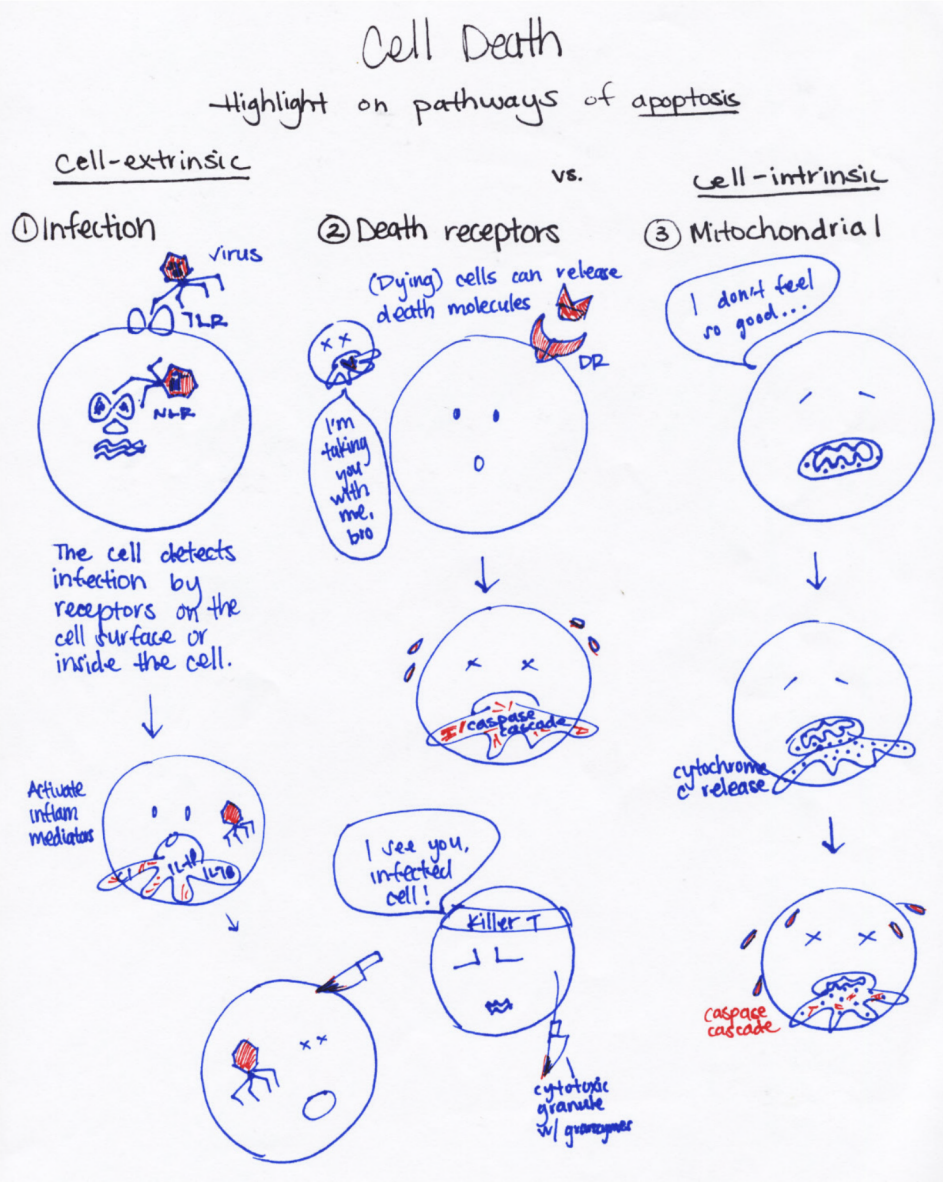 Cell Death
Highlight on pathways of apoptosis
Cell-extrinsic
vs.
Cell-intrinsic
① Infection
Virus
TLR
NLR
The cell detects
infection by
receptors on the
cell surface or
inside the cell.
Activate
inflam
mediators
IL-1β
IL-18
② Death receptors
(Dying) cells can release
death molecules
DR
I'm
taking
you
with
me,
bro
caspase
cascade
I see you,
infected
cell!
Killer T
cytotoxic
granule
w/ granzymes
③ Mitochondrial
I don't feel
so good...
cytochrome
c release
caspase
cascade